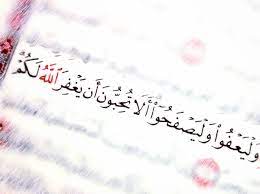 وَلْيَعْفُوا۟ وَلْيَصْفَحُوٓا۟ ۗ أَلَا تُحِبُّونَ أَن يَغْفِرَ ٱللَّهُ لَكُمْ